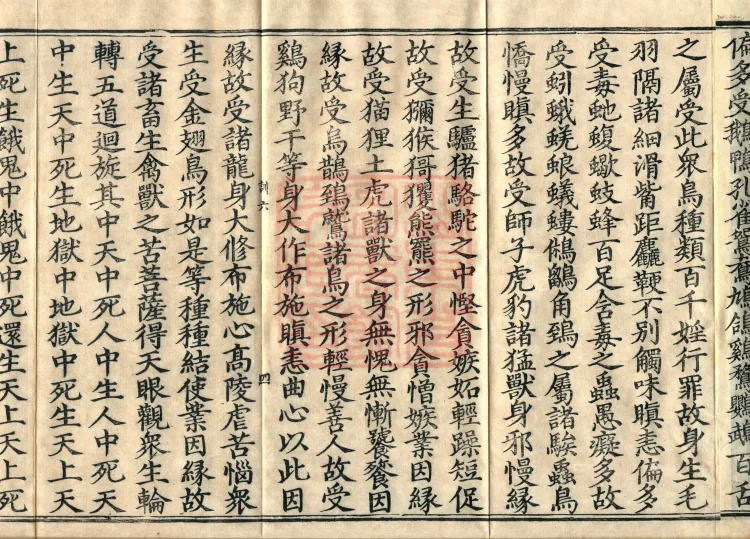 偏多受鵝鴨孔雀鴛鴦鳩鴿雞鶩鸚鵡百舌
之屬受此衆鳥種類百千婬行罪故身生毛
羽隔諸細滑觜距麤鞕不別觸味瞋恚偏多
受毒虵蝮蠍蚑蜂百足含毒之蟲愚癡多故
受蚓蛾蜣蜋蟻螻鵂鶹角鵄之屬諸騃蟲鳥
憍慢瞋多故受師子虎豹諸猛獸身邪慢緣
故受生驢猪駱駝之中慳貪嫉妬輕躁短促
故受獼猴𤟱玃熊羆之形邪貪憎嫉業因緣
故受猫狸土虎諸獸之身無愧無慚饕餮因
緣故受烏鵲鵄鷲諸鳥之形輕慢善人故受
雞狗野干等身大作布施瞋恚曲心以此因
訓六
四
緣故受諸龍身大修布施心高陵虐苦惱衆
生受金翅鳥形如是等種種結使業因緣故
受諸畜生禽獸之苦菩薩得天眼觀衆生輪
轉五道迴旋其中天中死人中生人中死天
中生天中死生地獄中地獄中死生天上天
上死生餓鬼中餓鬼中死還生天上天上死